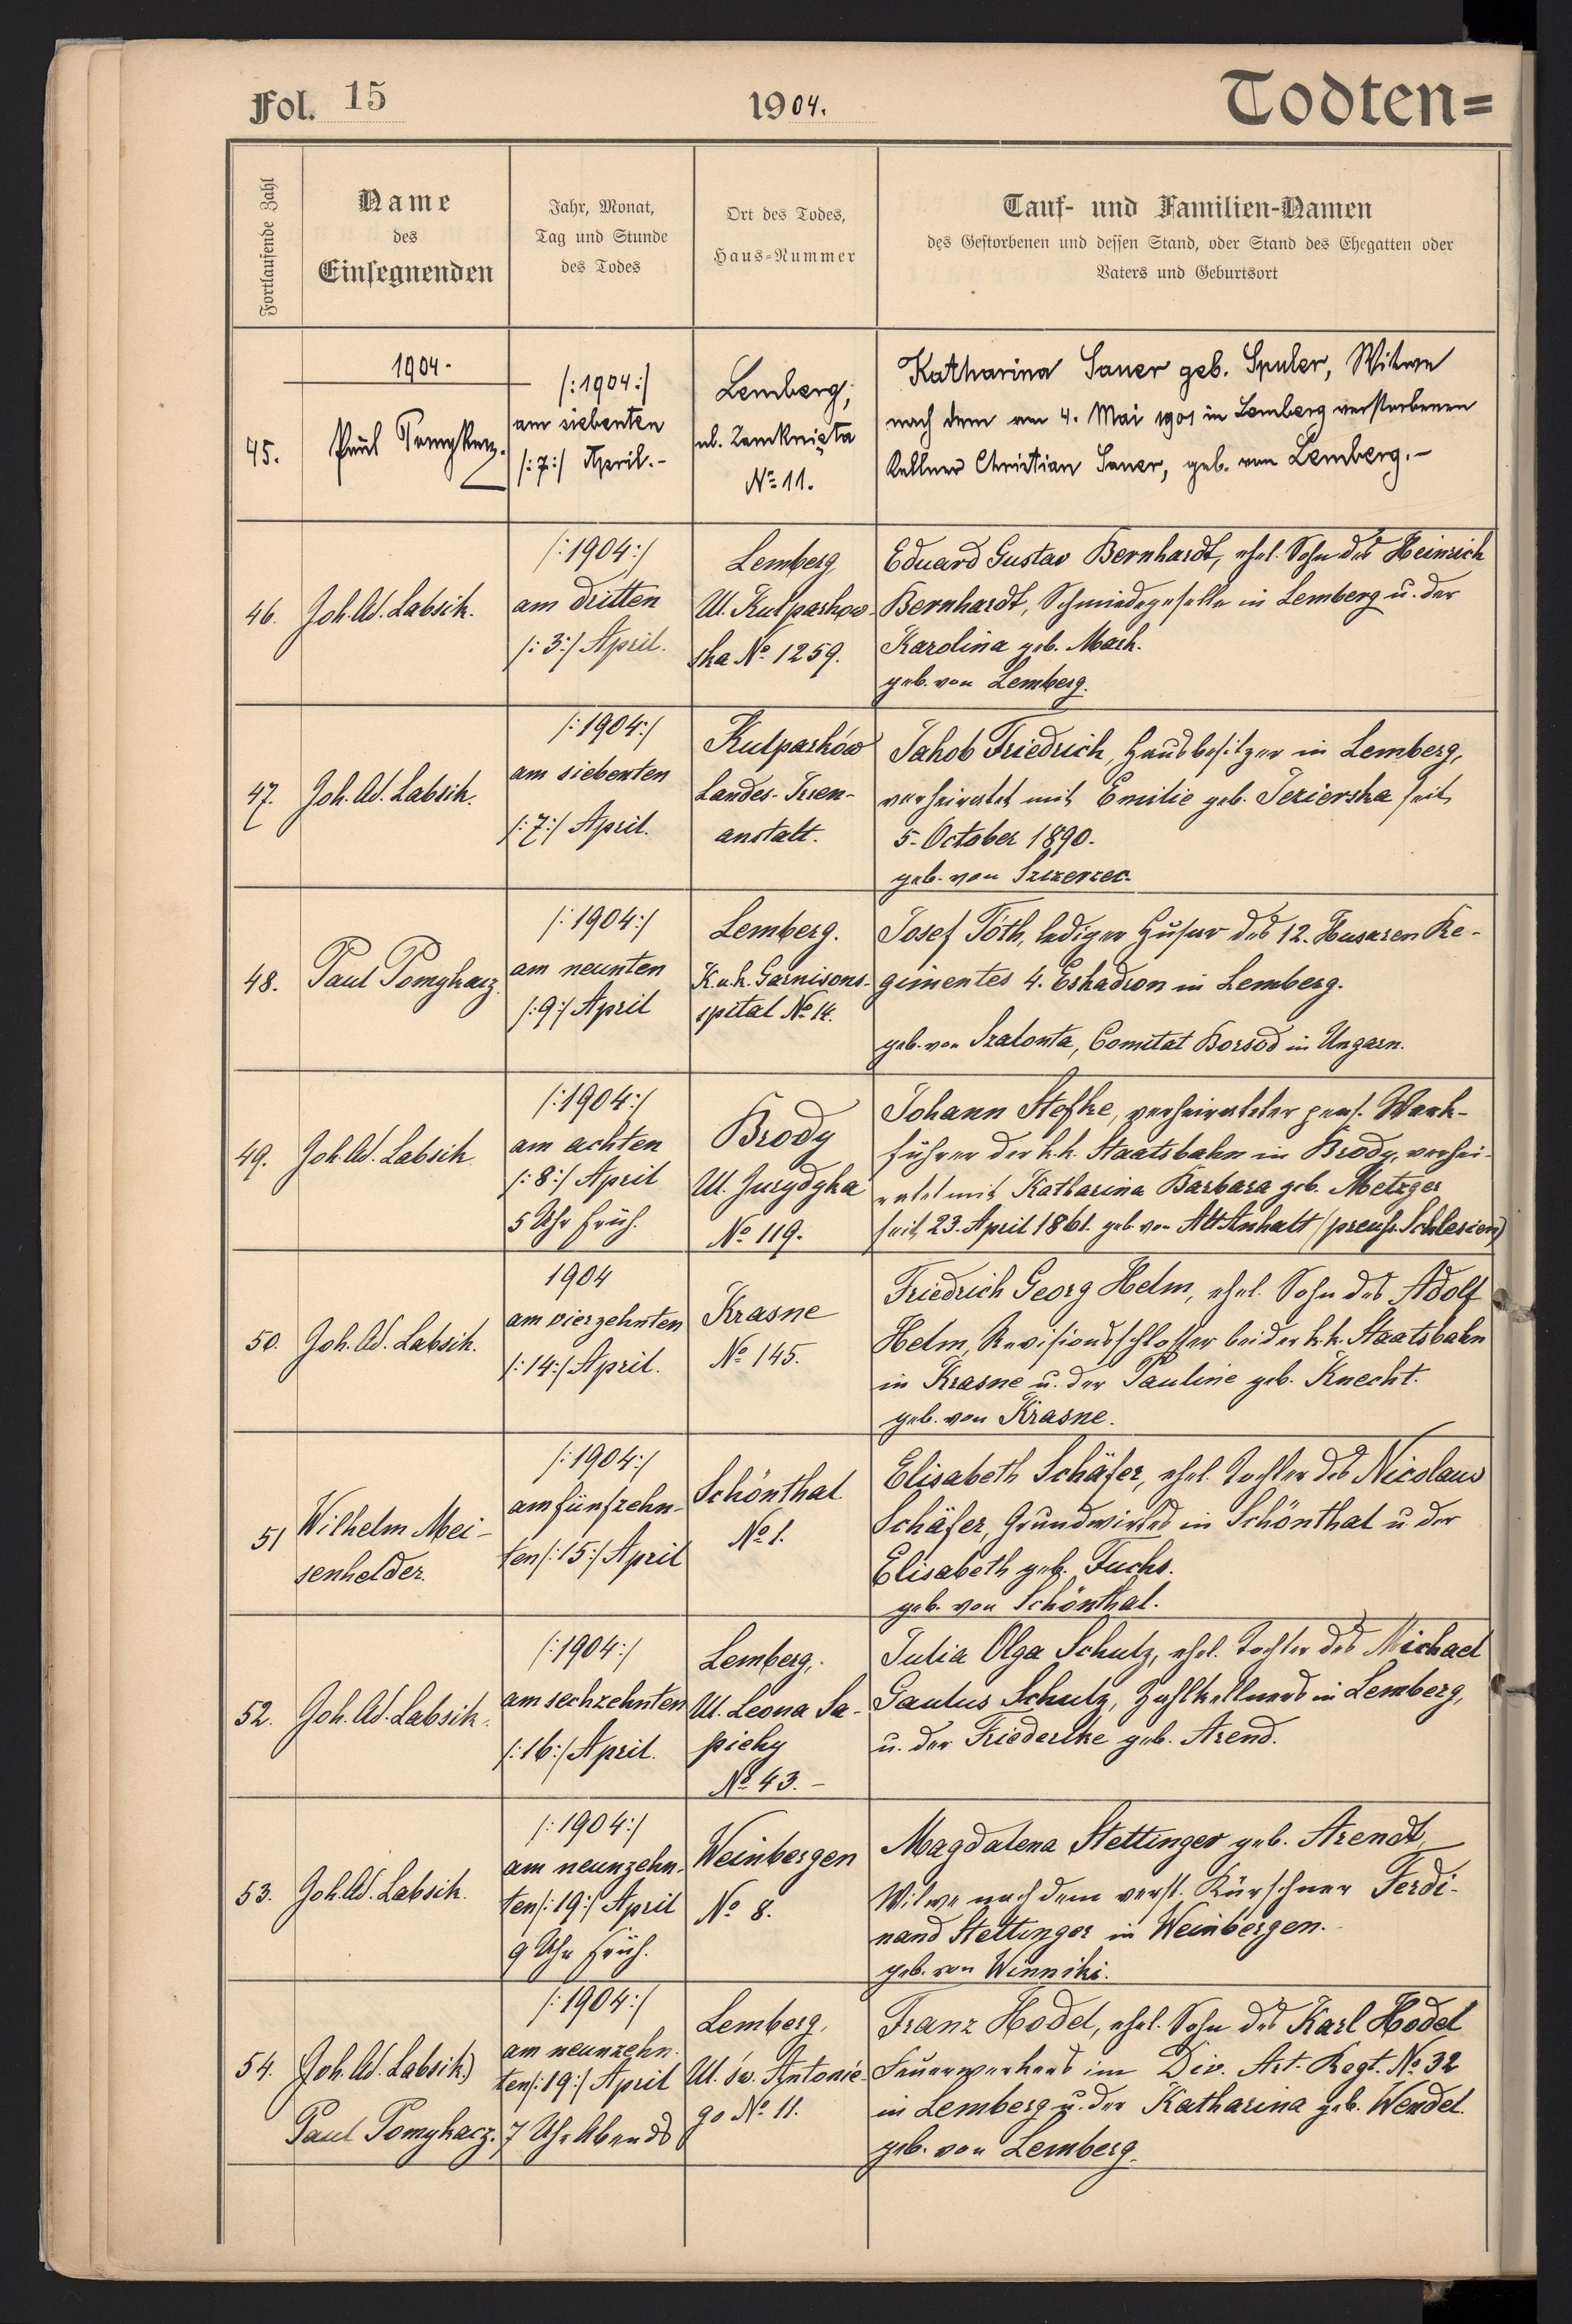 Fol. 15
1904.
Todten=
Fortlaufende Zahl
Name
des
Einsegnenden
Jahr, Monat,
Tag und Stunde
des Todes
Ort des Todes,
Haus-Nummer
Tauf- und Familien-Namen
des Gestorbenen und dessen Stand, oder Stand des Ehegatten oder
Vaters und Geburtsort
1904.
45.
Paul Pomykacz.
/:1904:/
am siebenten
/:7:/ April.-
Lemberg,
ul. Zamknięta
№ 11.
Katharina Sauer geb. Spuler, Witwe
nach dem am 4. Mai 1901 in Lemberg verstorbenen
Kellner Christian Sauer, geb. von Lemberg.-
46.
Joh. Ad. Labsik.
/:1904:/
am dritten
/:3:/ April.
Lemberg
Ul. Kulparkow-
ska № 1259.
Eduard Gustav Bernhardt, ehel. Sohn des Heinrich
Bernhardt, Schmiedegeselle in Lemberg u. der
Karolina geb. Mack.
geb. von Lemberg.
47.
Joh. Ad. Labsik.
/:1904:/
am siebenten
/:7:/ April.
Kulparków
Landes-Irren-
anstalt.
Jakob Friedrich, Hausbesitzer in Lemberg,
verheiratet mit Emilie geb. Jezierska seit
5. October 1890.
geb. von Szczerzec.
48.
Paul Pomykacz.
/:1904:/
am neunten
/:9:/ April
Lemberg.
K.u.k. Garnisons-
spital № 14.
Josef Tóth, lediger Husar des 12. Husaren Re-
gimentes 4. Eskadron in Lemberg.
geb. von Szalonta, Comitat Borsod in Ungarn.
49.
Joh. Ad. Labsik
/:1904:/
am achten
/:8:/ April
5 Uhr früh.
Brody
Ul. Jurydyka
№ 119.
Johann Stefke, verheirateter pens. Werk-
führer der k.k. Staatsbahn in Brody, verhei-
ratet mit Katharina Barbara geb. Metzger
seit 23. April 1861. geb. von Alt Anhalt (preuss. Schlesien)
50.
Joh. Ad. Labsik.
1904
am vierzehnten
/:14:/ April.
Krasne
№ 145.
Friedrich Georg Helm, ehel. Sohn des Adolf
Helm, Revisionsschlosser bei der k.k. Staatsbahn
in Krasne u. der Pauline geb. Knecht.
geb. von Krasne.
51
Wilhelm Mei-
senhelder.
/:1904:/
am fünfzehn-
ten /:15:/ April
Schönthal
№ 1.
Elisabeth Schäfer, ehel. Tochter des Nicolaus
Schäfer, Grundwirtes in Schönthal u. der
Elisabeth geb. Fuchs.
geb. von Schönthal.
52.
Joh. Ad. Labsik.
/:1904:/
am sechzehnten
/:16:/ April.
Lemberg,
Ul. Leona Sa-
piehy
№ 43.-
Julia Olga Schulz, ehel. Tochter des Michael
Paulus Schulz, Zahlkellners in Lemberg,
u. der Friederike geb. Arend.
53.
Joh. Ad. Labsik.
/:1904:/
am neunzehn-
ten /:19:/ April
9 Uhr früh.
Weinbergen
№ 8.
Magdalena Stettinger geb. Arendt,
Witwe nach dem verst. Kürschner Ferdi-
nand Stettinger in Weinbergen.
geb. von Winniki.
54.
(Joh. Ad. Labsik)
Paul Pomykacz.
/:1904:/
am neunzehn-
ten /:19:/ April
7 Uhr Abends
Lemberg,
Ul. św. Antonie-
go № 11.
Franz Hodel, ehel. Sohn des Karl Hodel
Feuerwerkers im Div. Art. Regt. № 32
in Lemberg u. der Katharina geb. Wendel.
geb. von Lemberg.